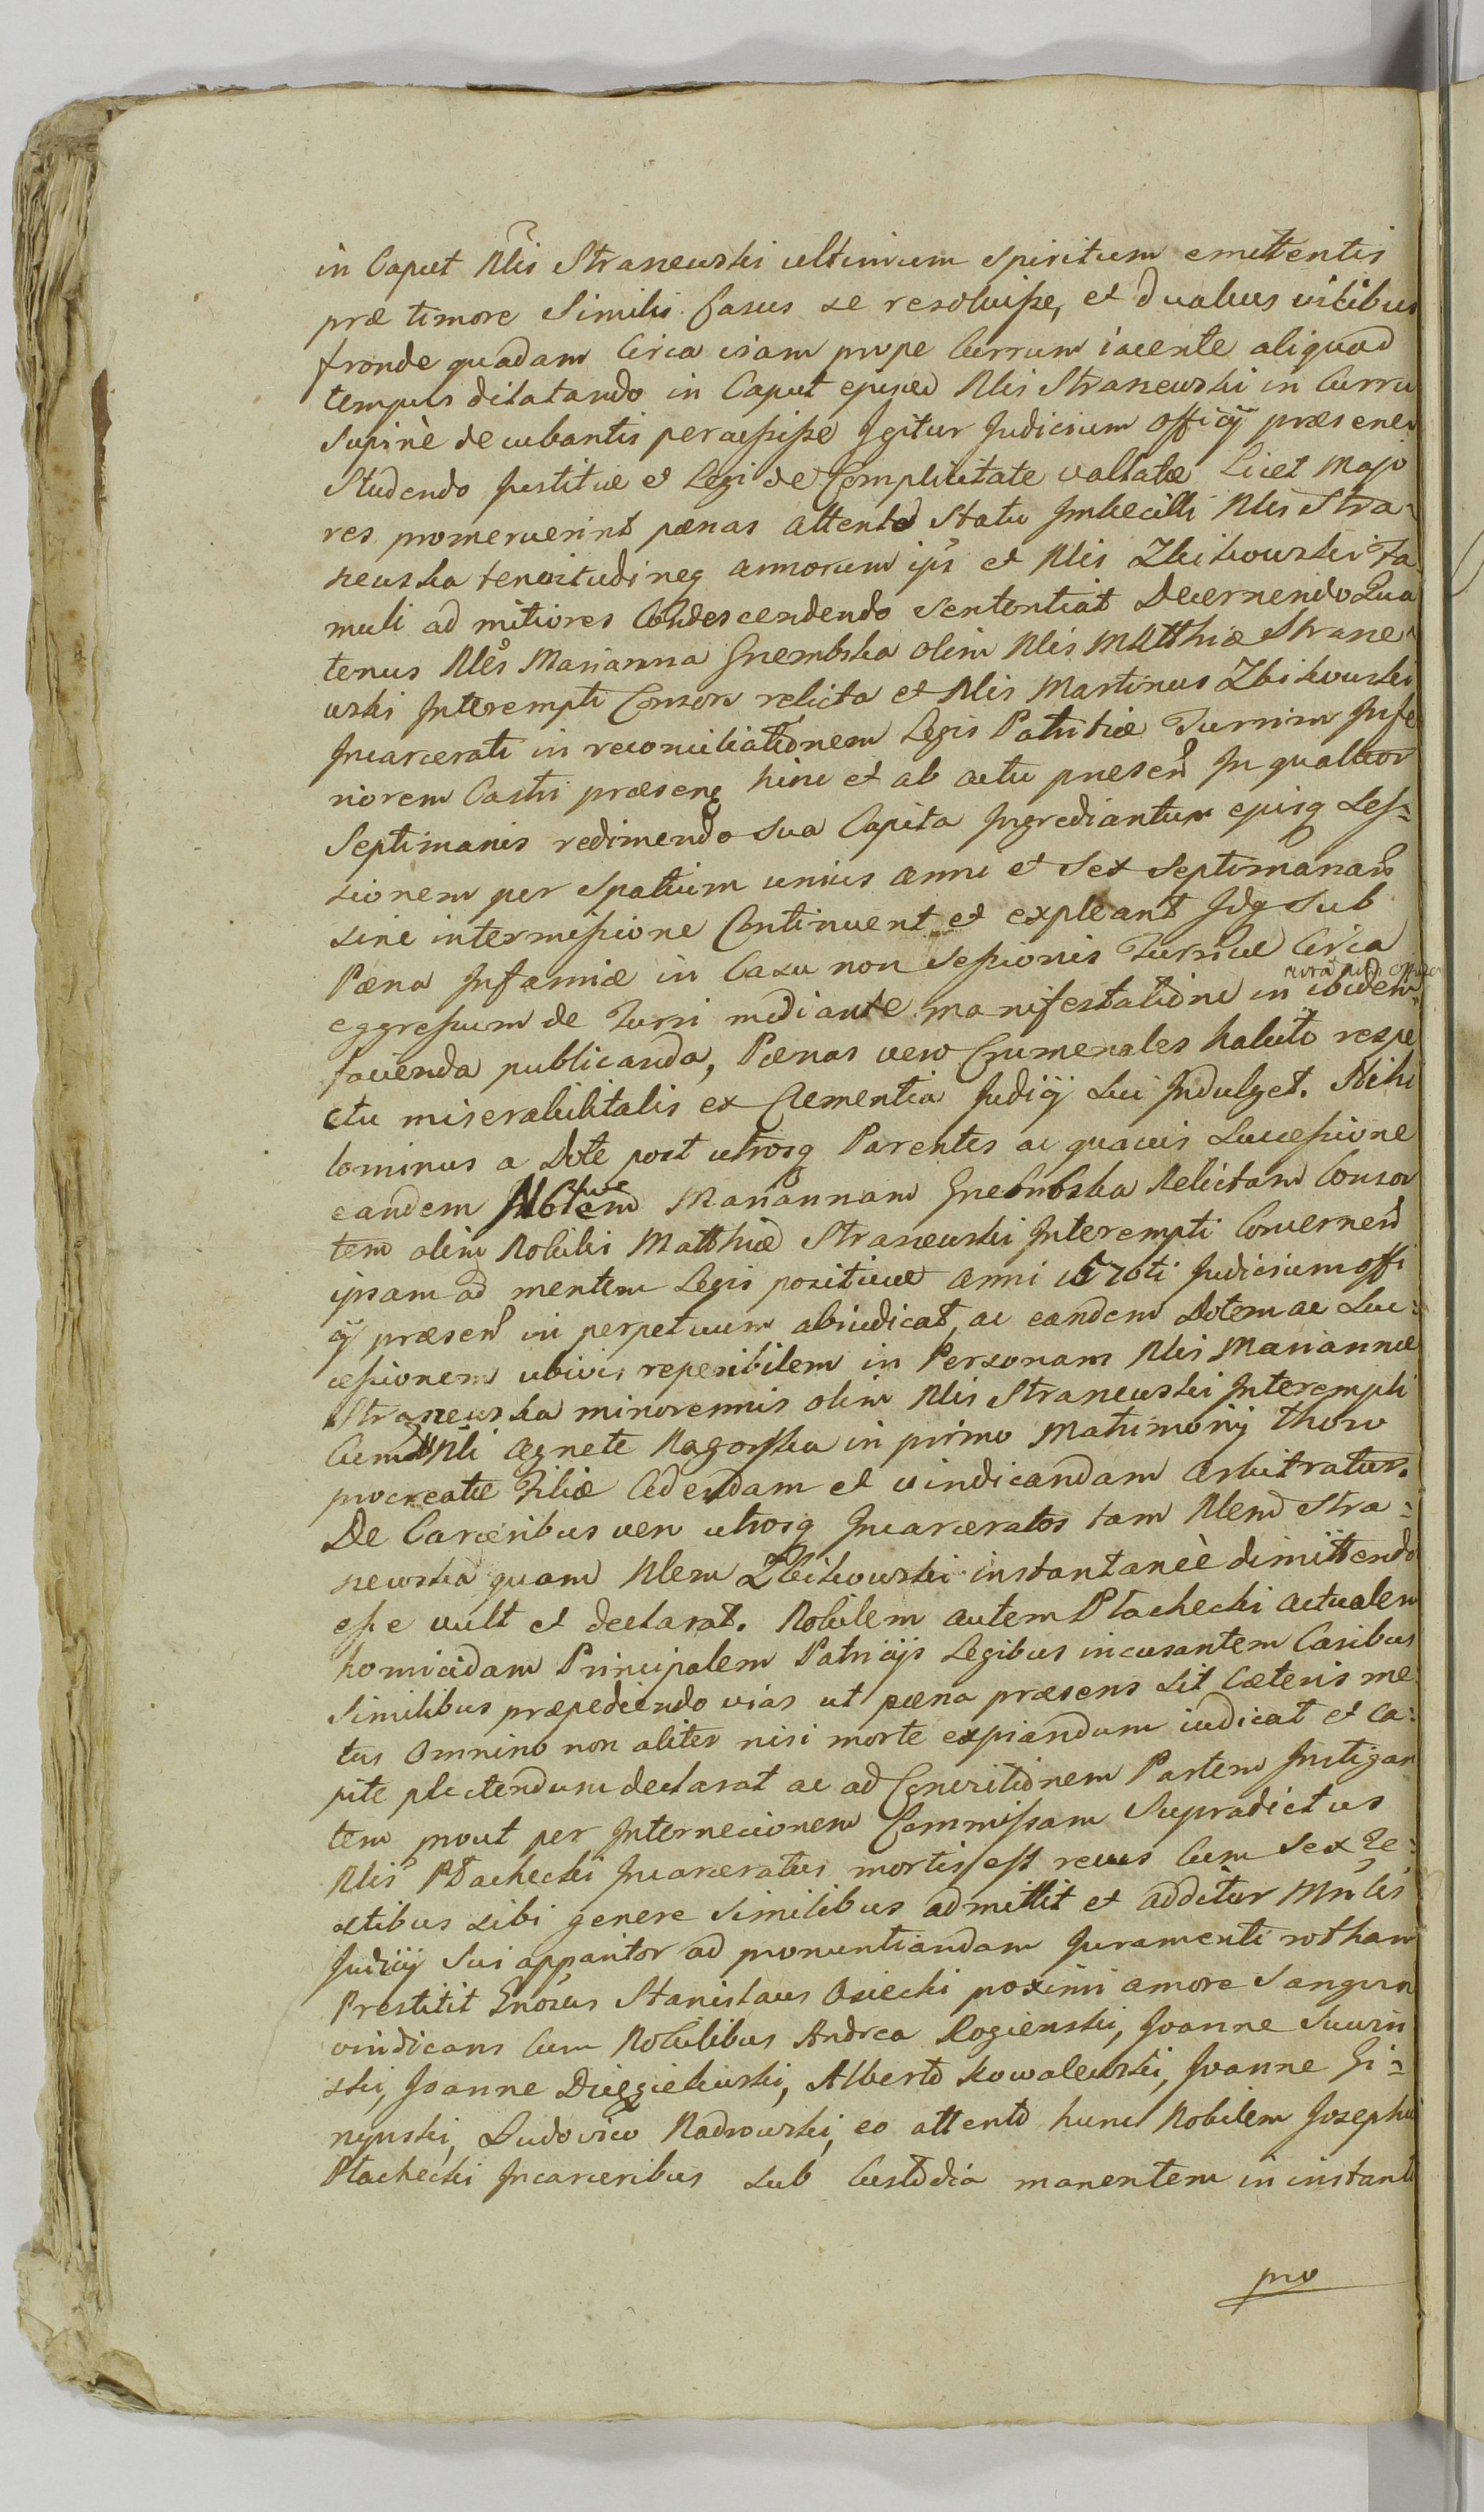 in Caput Nlis Straszewski ultimum spiritum emittentis
præ timore Similis Casus se resolvisse, et duabus vicibus
fronde quadam Circa viam prope Currum iacente aliquod
tempus dilatando in Caput ejusd Nlis Straszewski in Curru
Supinè decubantis percussisse Igitur Judicium Officÿ præsens
Studendo Justitiæ et Legi de Complicitate vallatæ Licet Majo
res promeruerint pænas attento Statu Imbecilli Nlis Stra-
szewska annorum ips et Nlis Zbikowski Fa
muli ad mitiores Condescendendo Sententiat Decernendo Qua
tenus Nles Marianna Gnembska olim Nlis Matthiæ Strasze-
wski Interempti Consors relicta et Nlis Martinus Zbikowski
Incarcerati in reconciliationem Legis Patritiæ Turrim Infe
riorem Castri præsens hinc et ab actu præsen In quatuor
Septimanis redimendo sua Capita Ingrediantur ejusq Ses-
sionem per Spatium unius anni et Sex Septimanar
sine intermissione Continuent et expleant Idq Sub
Pæna Infamiæ in Casu non Sessionis Turris Circa
eggressum de Turri mediante manifestatione in ibidem
facienda publicanda, Pænas vero Crumenales habito respe
ctu miserabilitatis ex Clementia Judicÿ Sui Indulget. Nihi
lominus a Dote post utrosq Parentes ac quavis Successione
eandem Mariannam Gnembska Relictam Consor
tem olim Nobilis Matthiæ Straszewski Interempti Concernen
ipsam ad mentem Legis positivæ anni Judicium offi
cÿ præsen in perpetuum abiudicat, ac eandem Dotem ac Suc-
cessionem ubivis reperibilem in Personam Nlis Mariannæ
Straszewska minorennis olim Nlis Straszewski Interempti
Cum Nli Agnete Ragowska in primo Matrimonÿ thoro
procreatæ Filiæ Cedendam et vindicandam arbitratur.
De Carceribus vero utrosq Incarceratos tam Nlem Stra-
szewska quam Nlem Zbikowski instantaneè dimittendo
esse vult et declarat. Nobilem autem Płachecki actualem
homicidam Principalem Patricÿs Legibus incusantem Casibus
Similibus præpediendo vias ut pæna præsens sit Cæteris me
tus Omnino non aliter nisi morte expiandum iudicat et Ca-
pite plectendum declarat ac ad Partem Instigan
tem prout per Internecionem Commissam Supradictus
Nlis Płachecki Incarceratus mortis est reus Cum Sex Te-
stibus sibi genere Similibus admittit et additur Mnlis
Judicÿ Sui apparitor ad pronuntiandam Juramenti rotham
Prestitit Gnosus Stanislaus Osiecki proximi amore Sanguin
vindicans Cum Nobilibus Andrea Rogienski, Joanne Suwin
ski, Joanne Dzięgielewski, Alberto Kowalewski, Joanne Gi-
nynski, Ludovico Nadrowski, eo attento hunc Nobilem Josephum
Płachecki Incarceribus sub Custodia manentem in instanti
pro